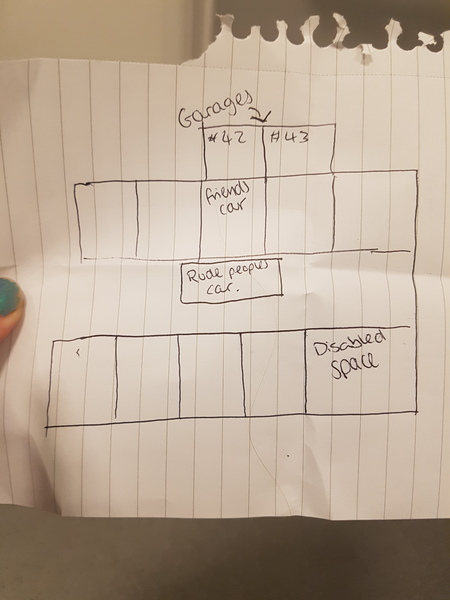 Garages
#42 #43
friends
car
Rude peoples
car.
Disabled
space